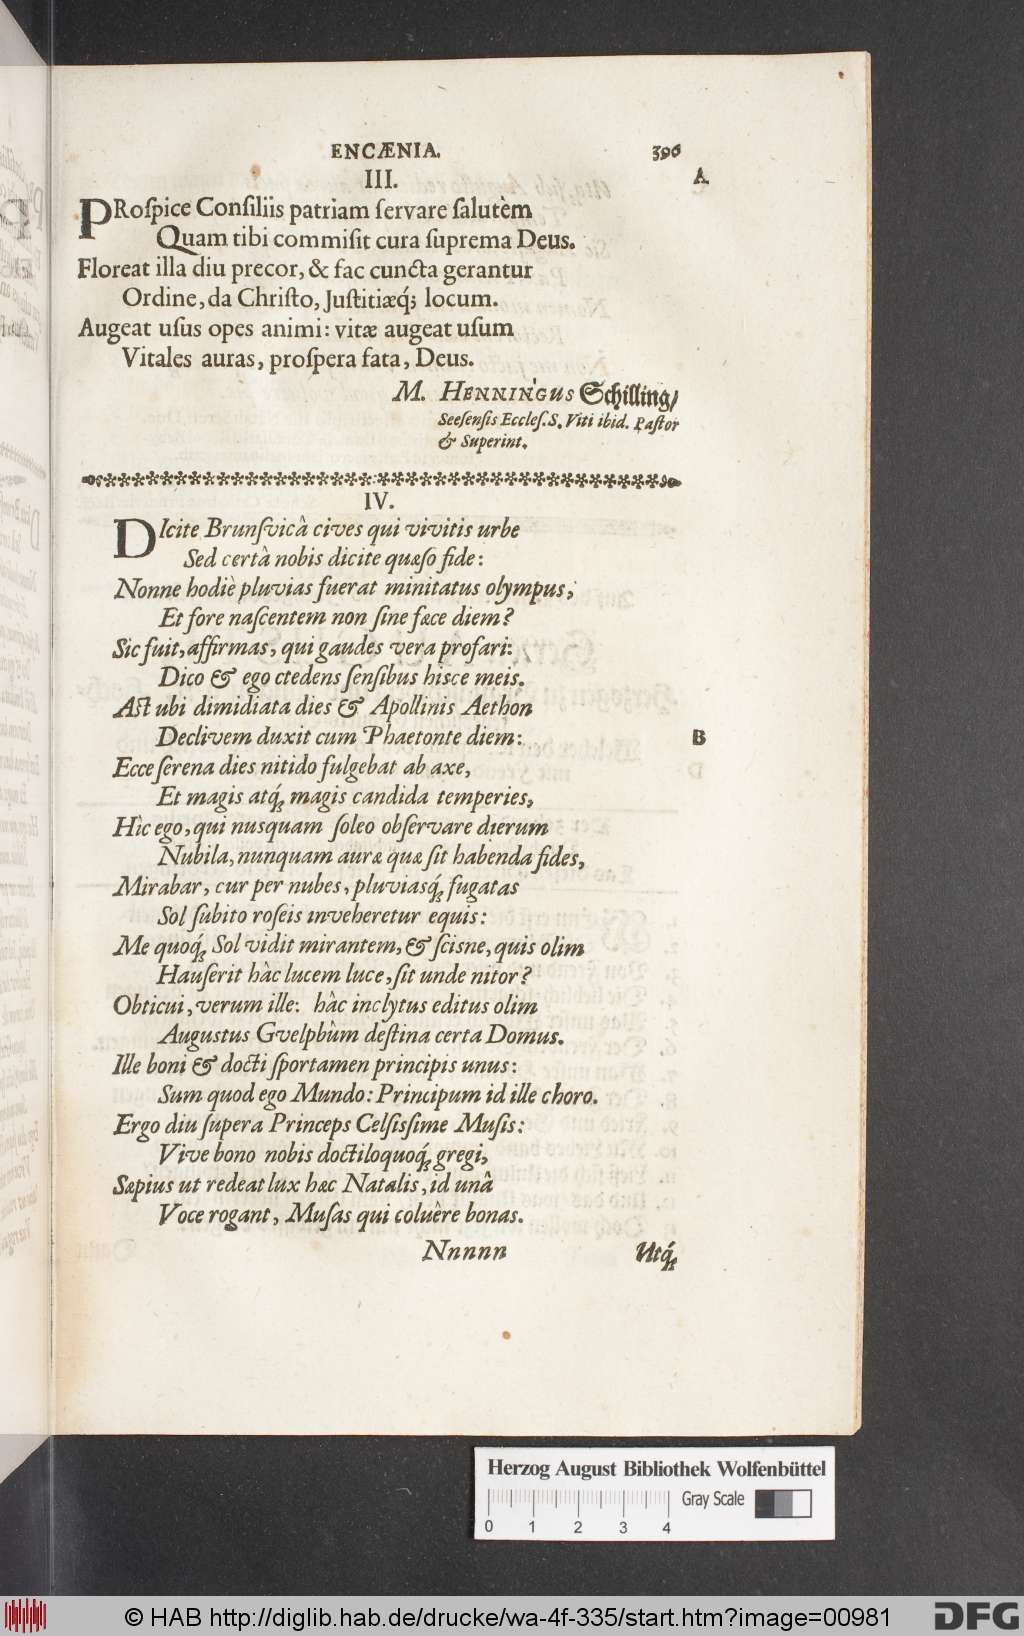 ENCÆNIA. 396
III. A
PRoſpice Conſiliis patriam ſervare ſalutèm
Quam tibi commiſit cura ſuprema Deus.
Floreat illa diu precor, & fac cuncta gerantur
Ordine, da Chriſto, Juſtitiæq́; locum.
Augeat uſus opes animi: vitæ augeat uſum
Vitales auras, proſpera fata, Deus.
M. HENNINGUS Schilling/
Seeſenſis Eccleſ. S. Viti ibid. Paſtor
& Superint.
IV.
DIcite Brunſvicâ cives qui vivitis urbe
Sed certâ nobis dicite quæſo fide:
Nonne hodiè pluvias fuerat minitatus olympus;
Et fore naſcentem non ſine fæce diem?
Sic fuit, affirmas, qui gaudes vera profari:
Dico & ego ctedens ſenſibus hisce meis.
Aſt ubi dimidiata dies & Apollinis Aethon
Declivem duxit cum Phaetonte diem: B
Ecce ſerena dies nitido fulgebat ab axe,
Et magis atq́; magis candida temperies,
Hìc ego, qui nusquam ſoleo obſervare dierum
Nubila, nunquam auræ quæ ſit habenda fides,
Mirabar, cur per nubes, pluviasq́; fugatas
Sol ſubito roſeis inveheretur equis:
Me quoq́; Sol vidit mirantem, & ſcisne, quis olim
Hauſerit hâc lucem luce, ſit unde nitor?
Obticui, verum ille: hâc inclytus editus olim
Augustus Gvelphûm deſtina certa Domus.
Ille boni & docti ſportamen principis unus:
Sum quod ego Mundo: Principum id ille choro.
Ergo diu ſupera Princeps Celſisſime Muſis:
Vive bono nobis doctiloquoq́; gregi,
Sæpius ut redeat lux hæc Natalis, id unâ
Voce rogant, Muſas qui coluêre bonas.
Nnnnn Utq́;
Herzog August Bibliothek Wolfenbüttel
Gray Scale
0 1 2 3 4
© HAB http://diglib.hab.de/drucke/wa-4f-335/start.htm?image=00981 DFG